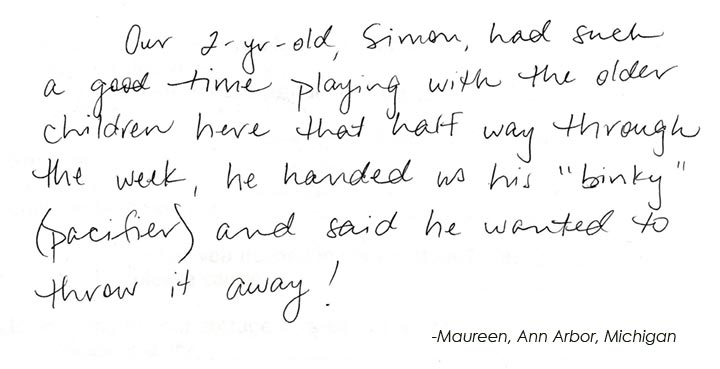 Our 2-yr-old, Simon, had such
a good time playing with the older
children here that half way through
the week, he handed us his "binky"
(pacifier) and said he wanted to
throw it away!
-Maureen, Ann Arbor, Michigan